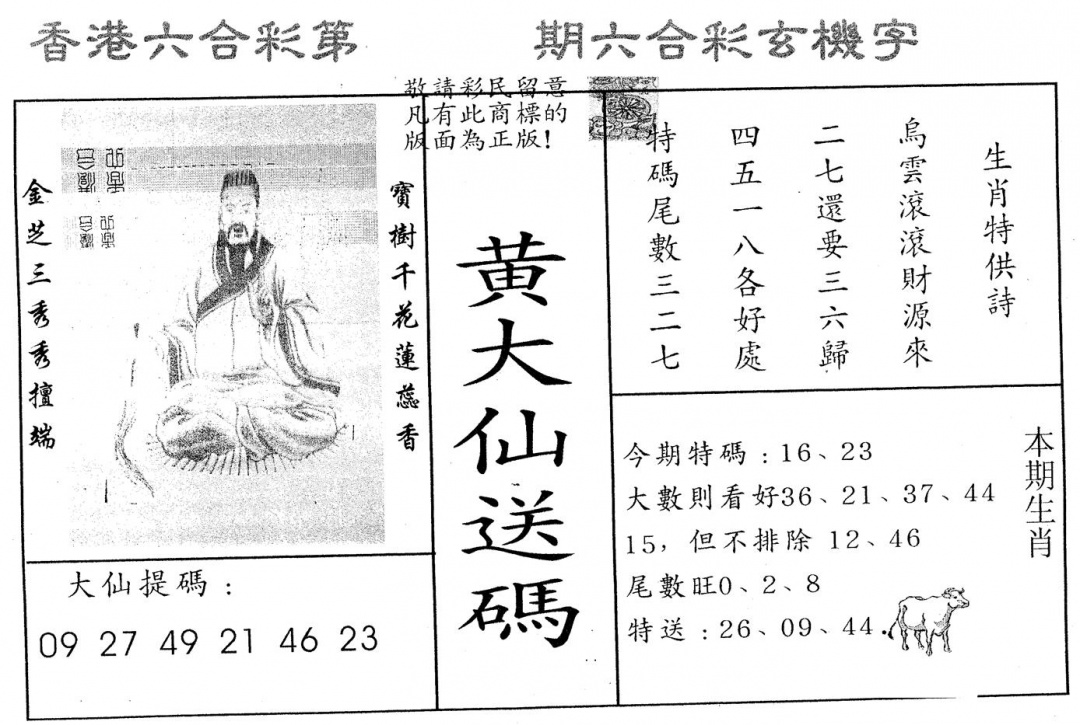 香港六合彩第 期六合彩玄機字
敬請彩民留意
凡有此商標的
版面為正版！
寶樹千花蓮蕊香
金芝三秀秀擅端
黃大仙送碼
大仙提碼：
09 27 49 21 46 23
生肖特供詩
烏雲滾滾財源來
二七還要三六歸
四五一八各好處
特碼尾數三二七
本期生肖
今期特碼：16、23
大數則看好36、21、37、44
15，但不排除 12、46
尾數旺0、2、8
特送：26、09、44.